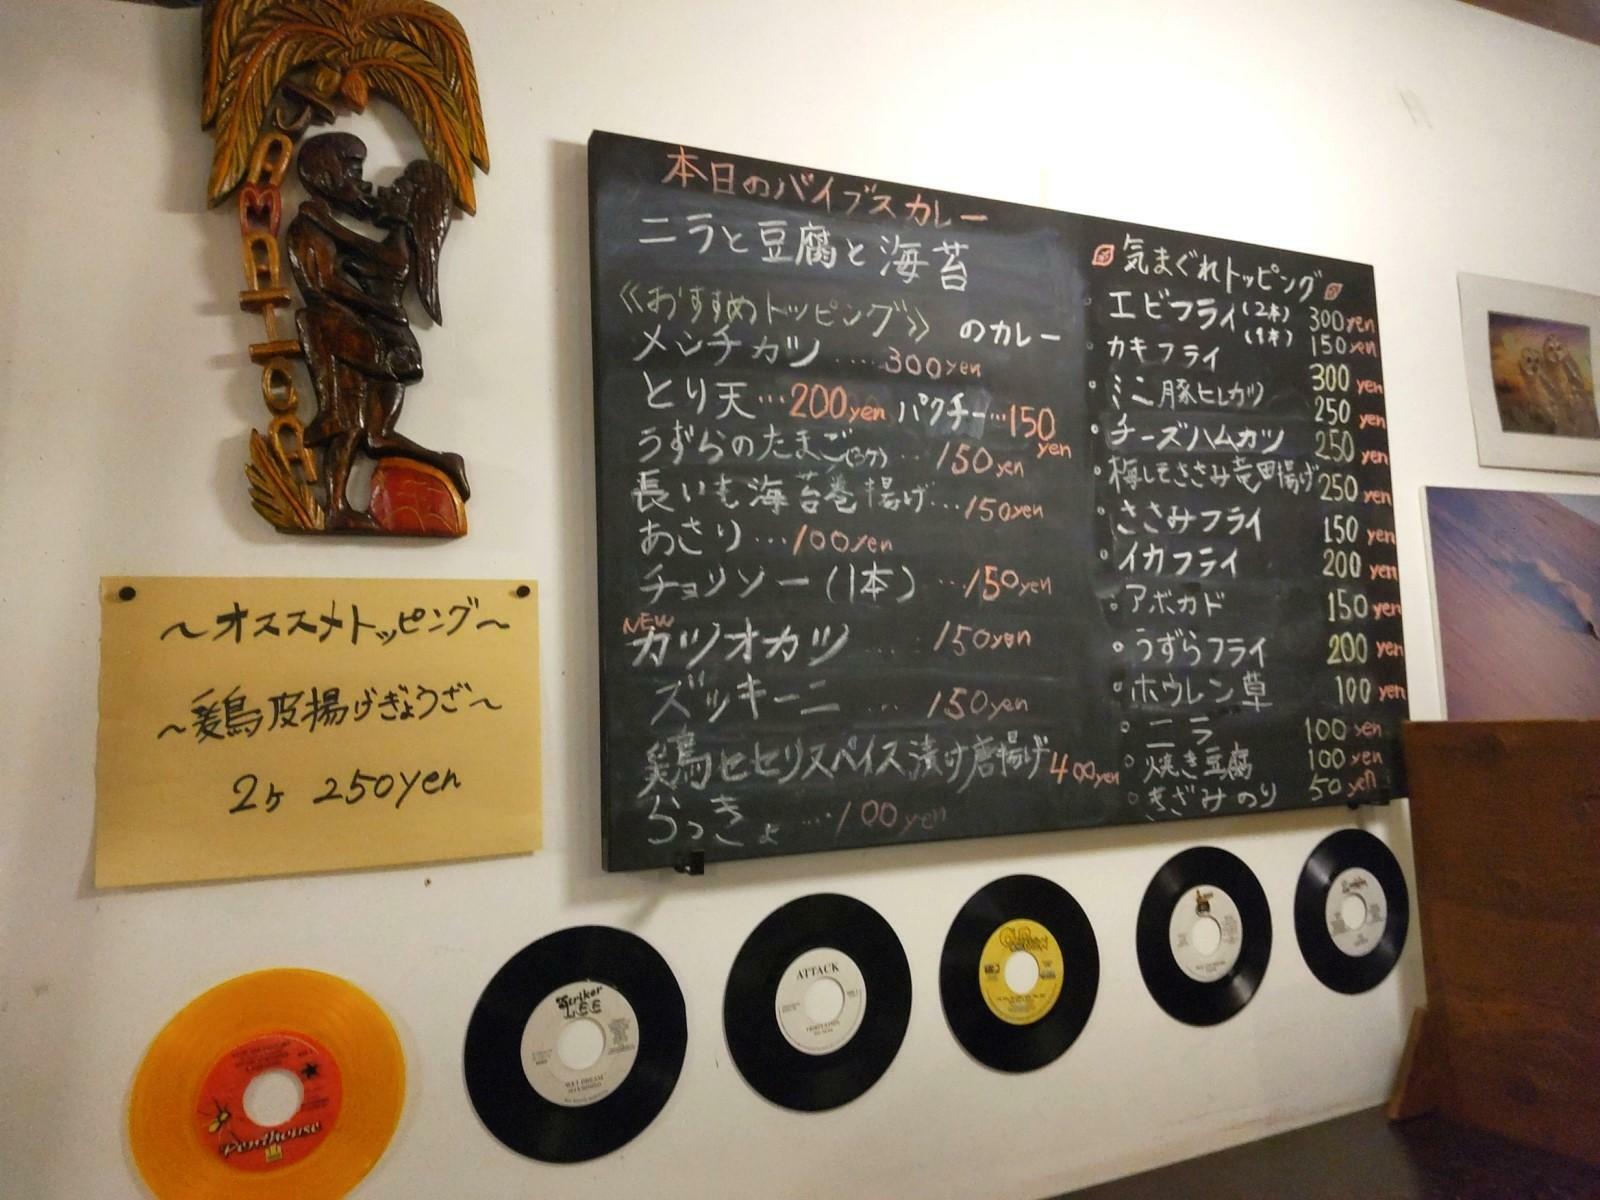 JAMAICA
本日のバイブスカレー
ニラと豆腐と海苔
のカレー
《おすすめトッピング》
メンチカツ ....300yen
とり天...200yen パクチー...150yen
うずらのたまご(3ケ)...150yen
長いも海苔巻揚げ...150yen
あさり...100yen
チョリソー(1本)...150yen
NEW
カツオカツ....150yen
ズッキーニ...150yen
鶏セセリスパイス漬け唐揚げ400yen
らっきょ...100yen
気まぐれトッピング
エビフライ(2本) 300yen
(1本) 150yen
カキフライ 300yen
ミニ豚ヒレカツ 250yen
チーズハムカツ 250yen
梅しそささみ竜田揚げ 250yen
ささみフライ 150yen
イカフライ 200yen
アボカド 150yen
うずらフライ 200yen
ホウレン草 100yen
ニラ 100yen
焼き豆腐 100yen
きざみのり 50yen
～オススメトッピング～
～鶏皮揚げぎょうざ～
2ヶ 250yen
Penthouse
Striker
LEE
WET DREAM
ATTACK